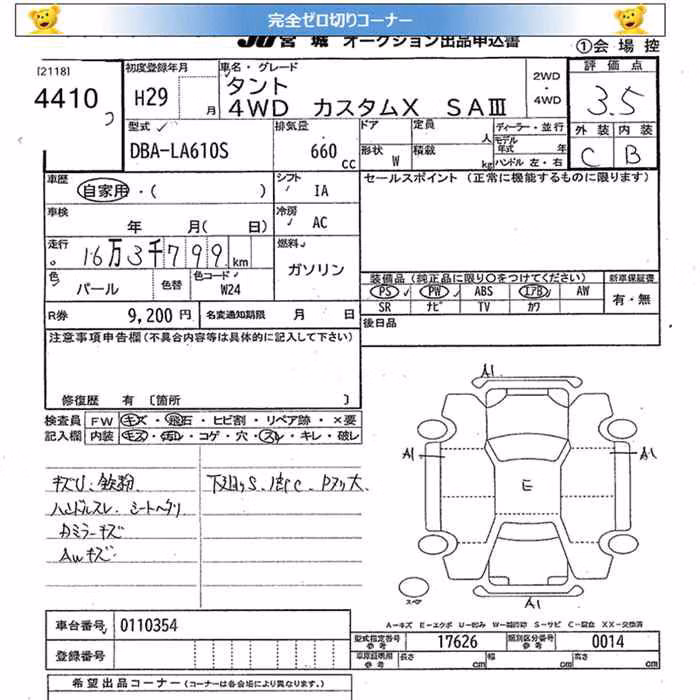 完全ゼロ切りコーナー
JU宮城 オークション出品申込書
①会場控
[2118]
4410
初度登録年月
H29 月
車名・グレード
タント
4WD カスタムX SAⅢ
2WD
・
4WD
評価点
3.5
外装 内装
C B
型式
DBA-LA610S
排気量
660 cc
ドア
定員 人
形状 W
積載 kg
ディーラー・並行
モデル年式 年
ハンドル 左・右
車歴
自家用・( )
シフト
IA
セールスポイント (正常に機能するものに限ります)
車検
年 月( 日)
冷房
AC
走行
16万3千799 km
燃料
ガソリン
色
パール
色替
色コード
W24
装備品 (純正品に限り○をつけてください)
新車保証書
PS PW ABS エアB AW
有・無
SR ナビ TV カワ
R券 9,200円
名変通知期限 月 日
後日品
注意事項申告欄(不具合内容等は具体的に記入して下さい)
修復歴 有 [箇所 ]
検査員 FW キズ・飛石・ヒビ割・リペア跡・×要
記入欄 内装 キズ・汚レ・コゲ・穴・スレ・キレ・破レ
キズU、鉄粉
下廻りS
ハンドルスレ シートヘタリ
カミラーキズ
AWキズ
A1
A1
A1
E
A1
スペア
A-キズ E-エクボ U-凹み S-サビ C-腐食 XX-交換済
車台番号 0110354
型式指定番号 参考 17626
類別区分番号 参考 0014
登録番号
長さ cm 幅 cm 高さ cm
希望出品コーナー (コーナーは各会場により異なります)